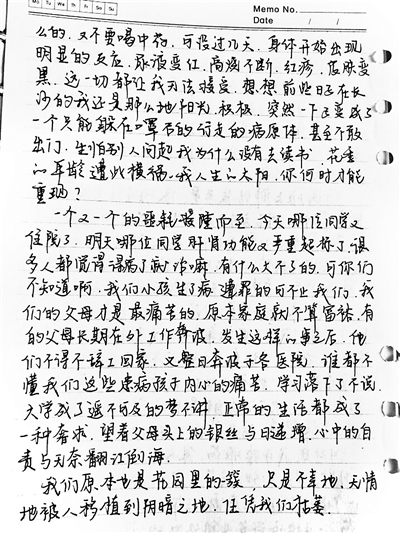 Mo Tu We Th Fr Sa Su
Memo No.
Date / /
么的，又不要喝中药，可没过几天，身体开始出现
明显的反应，尿液变红，高烧不断，红疹，皮肤变
黑，这一切都让我无法接受，想想前些日子在长
沙的我还是那么地阳光，积极，突然一下子变成了
一个只能躲在口罩后的行走的病原体，甚至不敢
出门，生怕别人问起我为什么没有去读书，花季
的年龄遭此横祸，我人生的太阳，你何时才能
重现？
一个又一个的噩耗接踵而至，今天哪位同学又
住院了，明天哪位同学肝肾功能又严重超标了，很
多人都觉得得病了就治嘛，有什么大不了的，可你们
不知道啊，我们小孩生了病遭罪的可不止我们，我
们的父母才是最痛苦的，原本家庭就不算富裕，有
的父母长期在外工作奔波，发生这样的事之后，他
们不得不辞工回家，又整日奔波于各医院，谁都不
懂我们这些患病孩子内心的痛苦，学习落下了不说，
大学成了遥不可及的梦不讲，正常的生活都成了
一种奢求，望着父母头上的银丝与日递增，心中的自
责与无奈翻江倒海。
我们原本也是花园里的
只是不幸地，无情
地被人移植到阴暗之地，任凭我们枯萎。